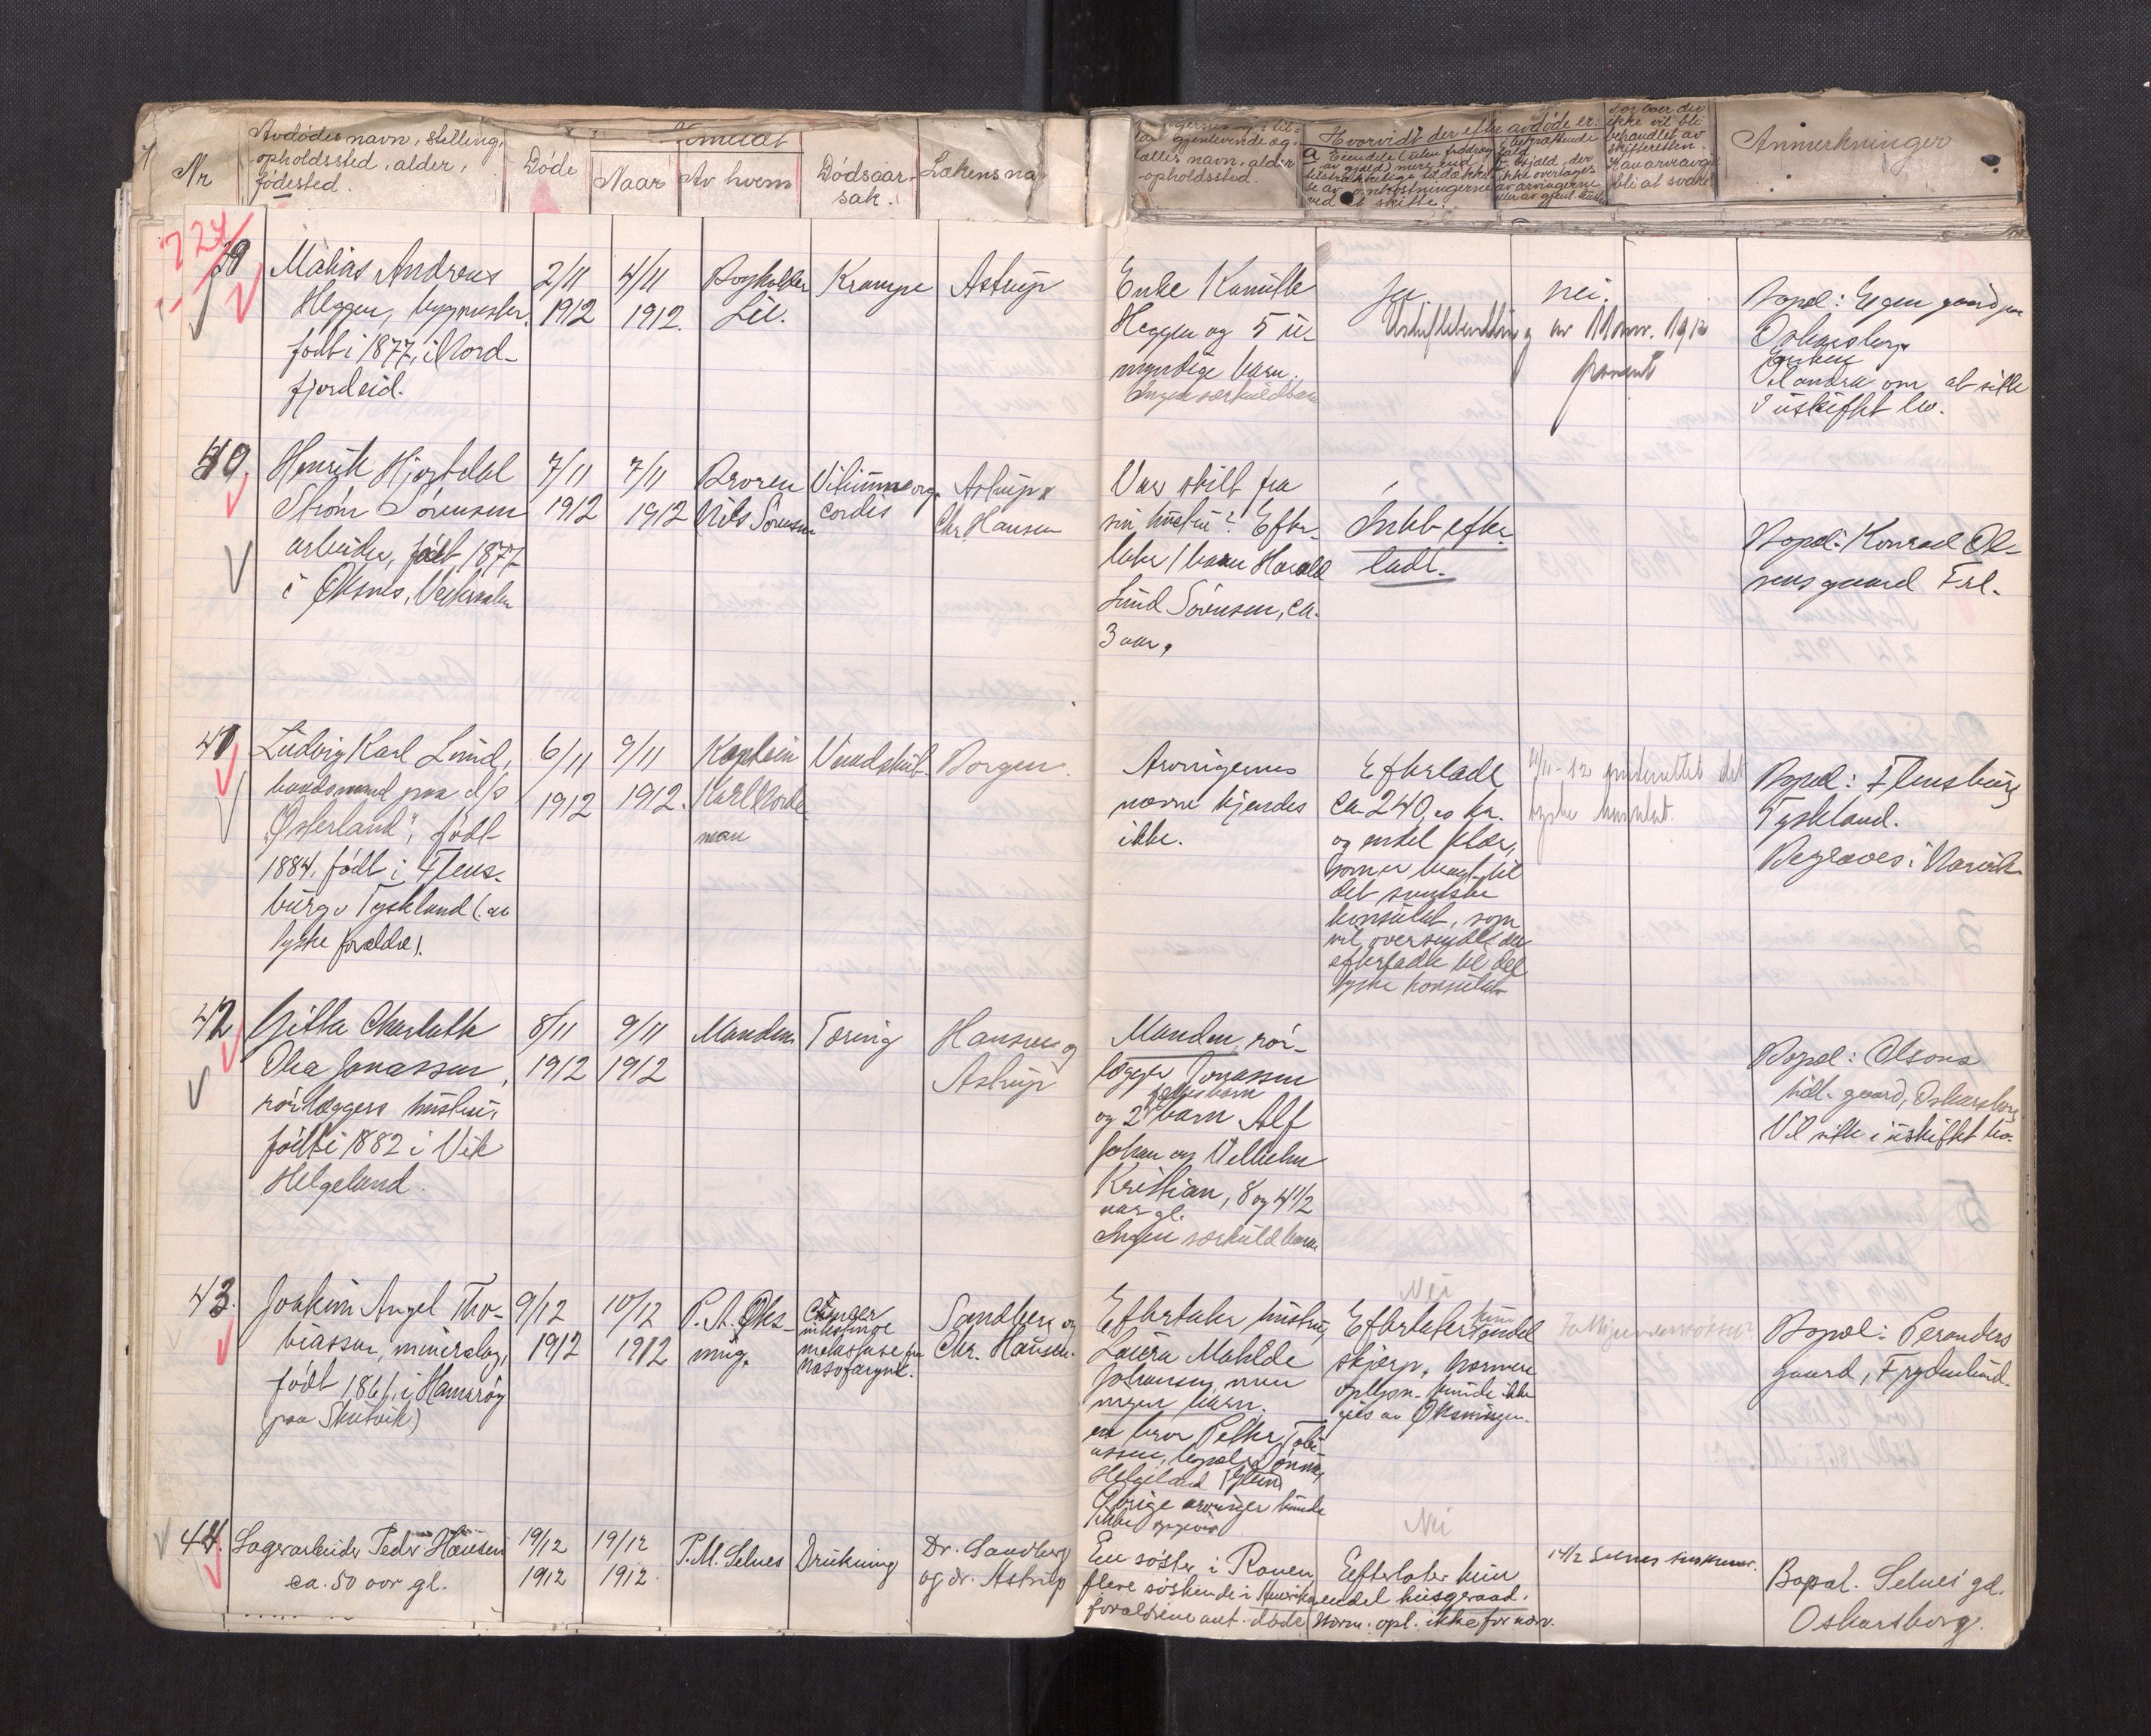 Nr
Avdødes navn, stilling,
opholdssted, alder,
fødested.
Døde
Anmeldt
Naar
Av hvem
Dødsaar-
sak.
Lækens na
gjenlevende æg-
tefælles navn, alder
opholdssted.
Hvorvidt der efter avdøde er:
ikke vil bli
behandlet av
skifteretten.
bli at svare
Anmerkninger
39
Mathias Andreas
Heggen, bygmester,
født i 1877, i Nord-
fjordeid.
2/11
1912
4/11
1912.
Bogholder
Lie.
Krampe
Astrup
Enke Kamilla
Heggen og 5 u-
myndige barn.
Ingen særkuldbarn
Ja
nei.
Uskiftebevilling av 11 nov. 1912
Bopæl: Egen gaard paa
Oskarsborg.
Enken
Vil andra om at sitte
i uskiftet bo.
40.
Henrik Hjortdal
Strøm Sørensen
arbeider, født 1877
i Øksnes, Vesteraalen
7/11
1912
7/11
1912
Broren
Nils Sørensen
Vitium org.
cordis
Astrup &
Chr. Hansen
Var skilt fra
sin hustru? Efter-
later 1 barn Harald
Lund Sørensen, ca.
3 aar.
Intet efter-
ladt.
Bopæl: Konrad Ol-
sens gaard Frl.
41
Ludvig Karl Lund,
baadsmand paa d/s
"Østerland", født
1884, født i Flens-
burg, Tyskland (av
tyske forældre).
6/11
1912
9/11
1912.
Kaptein
Karl Norde
man
Vaadskud
Borgen.
Arvingernes
navne kjendes
ikke.
Efterladt
ca. 240,00 kr.
og endel klær,
som er bragt til
det svenske
konsulat, som
vil oversende det
efterladte til det
tyske konsulat
11/11-12 underrettet det
tyske konsulat.
Bopæl: Flensburg
Tyskland.
Begraves i Narvik
42
Gitta Charlotte
Olea Jonassen,
rørlæggers hustru,
født i 1882 i Vik
Helgeland.
8/11
1912
9/11
1912
Manden
Tæring
Hansen og
Astrup
Manden, rør-
lægger Jonassen
fællesbarn
og 2 barn Alf
Johan og Vilhelm
Kristian, 8 og 4 1/2
aar gl.
Ingen særkuldbarn
Bopæl: Olsons
hotl. gaard, Oskarsborg.
Vil sitte i uskiftet bo.
43.
Joakim Angel Tho-
biassen, minerslag,
født 1861, i Hamarøy
(paa Skutvik)
9/12
1912
10/12
1912
P. A. Øks-
ning.
Cancer
metastase fra
Nasofarynk.
Sandberg og
Chr. Hansen.
Efterlater hustru
Laura Matilde
Johansen, men
ingen barn.
en bror Petter Tobi-
assen, bopæl Dønna,
Helgeland
Øvrige arvinger kunde
ikke opgives
Nei
Efterlater kun endel
skjerp. Nærmere
oplysn. kunde ikke
gies av Øksningen.
Bopæl: Peranders
gaard, Frydenlund.
44.
Lagerarbeider Peder Hansen
ca. 50 aar gl.
19/12
1912
19/12
1912.
P. M. Selnes
Drukning
Dr. Sandberg
og dr. Astrup
En søster i Ranen
flere søskende i Amerika
forældrene ant. døde
Nei
Efterlater kun
endel husgeraad.
Nærm. opl. ikke for nærv.
Bopæl. Selnes' gd.
Oskarsborg.